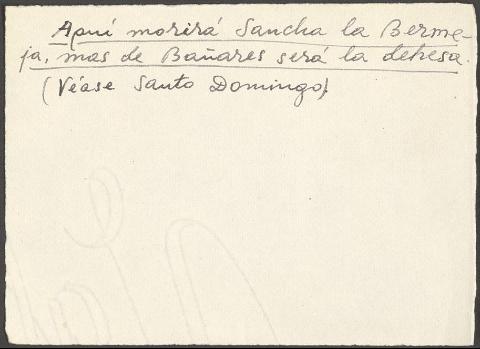 Aquí morirá Sancha la Berme-
ja, mas de Bañares será la dehesa.
(Véase Santo Domingo)